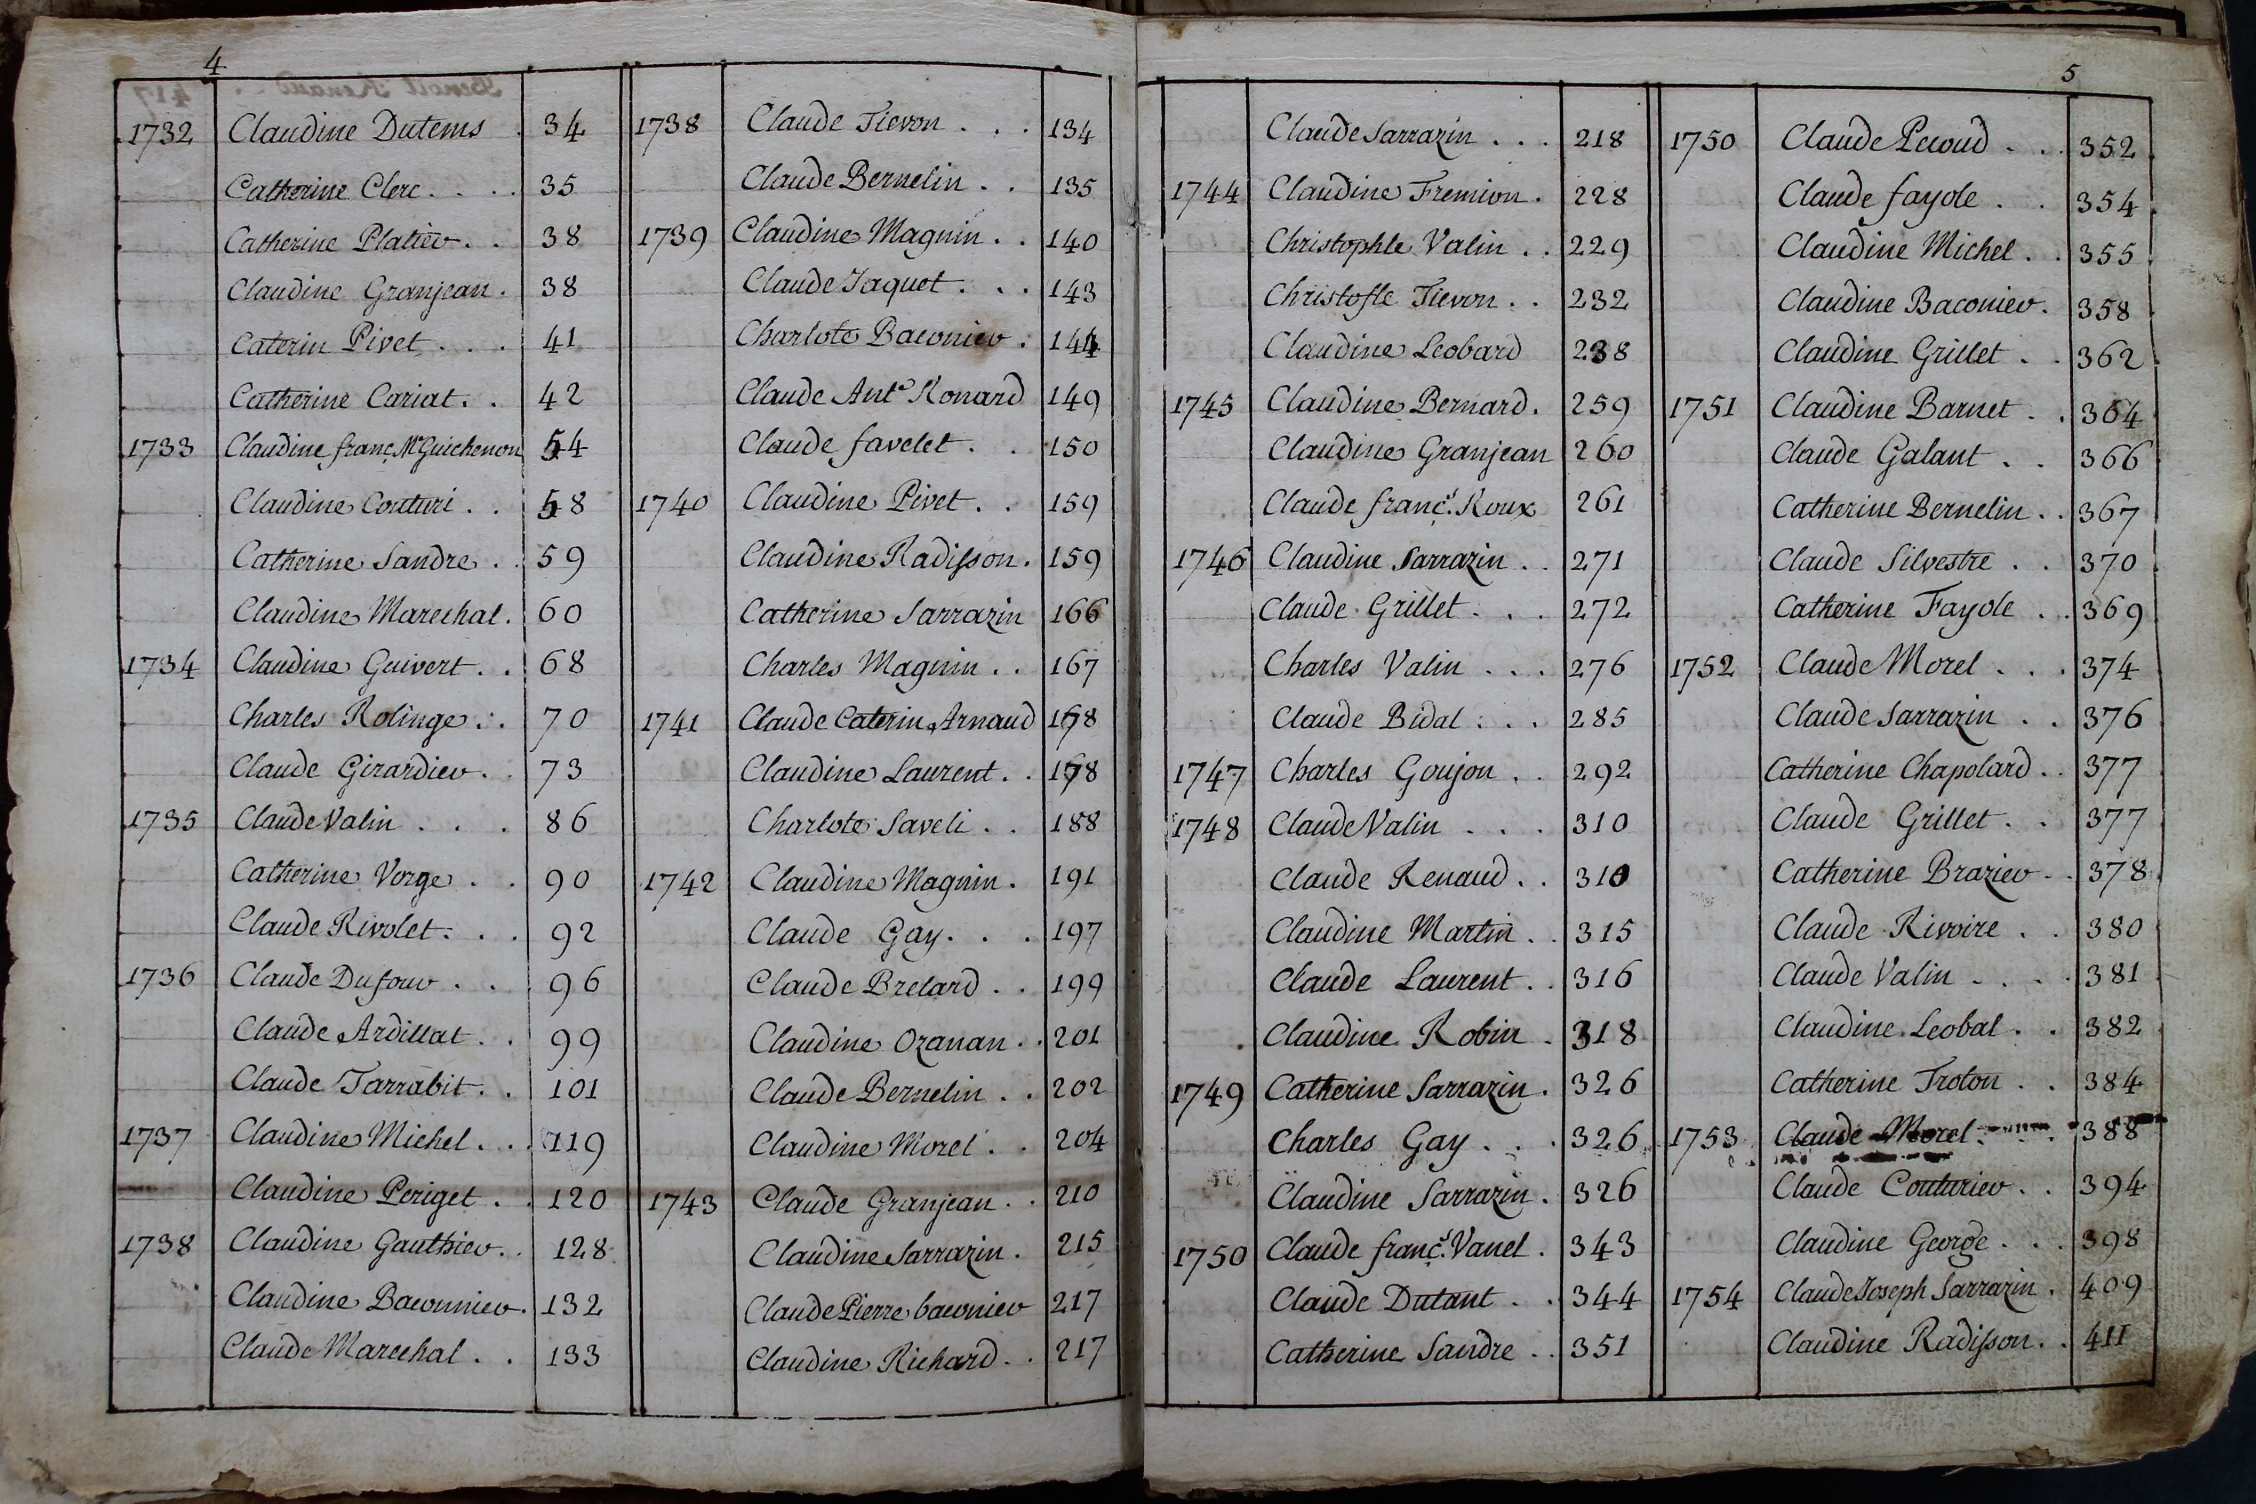 4
1732 Claudine Dutems . 34
Catherine Clerc . . . . 35
Catherine Platier . . 38
Claudine Granjean . 38
Caterin Pivet . . . 41
Catherine Cariat . . 42
1733 Claudine franc. Me Guichenon 54
Claudine Couturi . . 58
Catherine Sandre . . 59
Claudine Mareshal . 60
1734 Claudine Guivert . . 68
Charles Rolinge . . 70
Claude Girardier . . 73
1735 Claude Valin . . . 86
Catherine Vorge . . 90
Claude Rivolet . . . 92
1736 Claude Dufour . . 96
Claude Ardillat . . 99
Claude Tarrabit . . 101
1737 Claudine Michel . . . 119
Claudine Periget . . 120
1738 Claudine Gauthier . . 128
Claudine Baconnier . 132
Claude Mareshal . . 133
1738 Claude Tievon . . . 134
Claude Bernelin . . 135
1739 Claudine Magnin . . 140
Claude Jaquet . . . 143
Charlote Baconier . 144
Claude Ante Ronard 149
Claude favelet . . 150
1740 Claudine Pivet . . 159
Claudine Radisson . 159
Catherine Sarrazin 166
Charles Magnin . . 167
1741 Claude Caterin Arnaud 178
Claudine Laurent . . 178
Charlote Saveli . . 188
1742 Claudine Magnin . 191
Claude Gay . . . 197
Claude Brelard . . 199
Claudine Ozanan . . 201
Claude Bernelin . . 202
Claudine Morel . . 204
1743 Claude Granjean . . 210
Claudine Sarrazin . 215
Claude Pierre baconier 217
Claudine Richard . . 217
5
Claude Sarrazin . . . 218
1744 Claudine Fremion . 228
Christophle Valin . . 229
Christofle Tievon . . 232
Claudine Leobard 238
1745 Claudine Bernard . 259
Claudine Granjean 260
Claude francs. Roux 261
1746 Claudine Sarrazin . . 271
Claude Grillet . . . 272
Charles Valin . . . 276
Claude Bidal . . . 285
1747 Charles Goujon . . 292
1748 Claude Valin . . . 310
Claude Renaud . . 310
Claudine Martin . . 315
Claude Laurent . . 316
Claudine Robin . 318
1749 Catherine Sarrazin . 326
Charles Gay . . . 326
Claudine Sarrazin . 326
1750 Claude francs. Vanel . 343
Claude Dutant . . 344
Catherine Sandre . . 351
1750 Claude Pecoud . . . 352
Claude fayole . . 354
Claudine Michel . . 355
Claudine Baconier . 358
Claudine Grillet . . 362
1751 Claudine Barnet . . 364
Claude Galant . . 366
Catherine Bernelin . . 367
Claude Silvestre . . 370
Catherine Fayole . . 369
1752 Claude Morel . . . 374
Claude Sarrazin . . 376
Catherine Chapolard . . 377
Claude Grillet . . 377
Catherine Brazier . . 378
Claude Rivoire . . 380
Claude Valin . . . 381
Claudine Leobal . . 382
Catherine Troton . . 384
1753 Claude Morel . . . 388
Claude Couturier . . 394
Claudine George . . . 398
1754 Claude Joseph Sarrazin . 409
Claudine Radisson . . 411